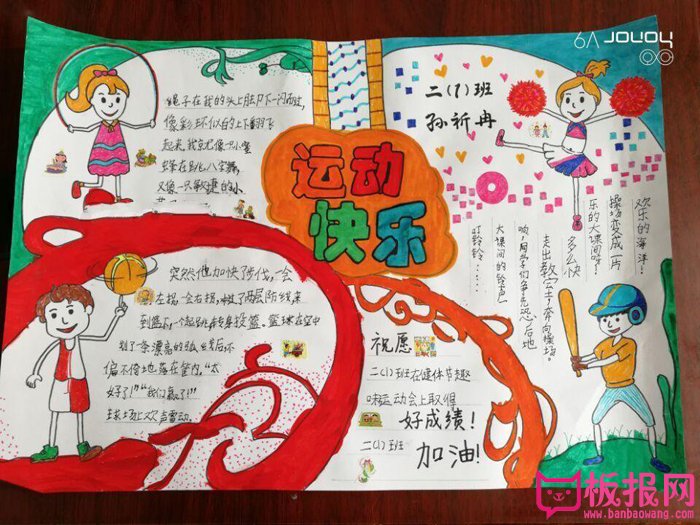 6A JOUOY
绳子在我的头上脚下一闪而过,
像彩环似的上下翻飞
起来,我就像一只小蜜
蜂在跳八字舞,
又像一只敏捷的小
运动
快乐
二(1)班
孙祈冉
欢乐的海洋!
操场变成一片
乐的大课间呀!
多么快
走出教室,奔向操场。
响,同学们争先恐后地
大课间的铃声
叮铃铃……
突然他加快了步伐,一会
左拐,一会右拐,
两层防线来
到篮下,一个起跳转身投篮。篮球在空中
划了一条漂亮的弧线后不
偏不倚地落在筐内,“太
好了!”“我们赢了!”
球场上欢声雷动。
祝愿
二(1)班在健体节趣
味运动会上取得
好成绩!
二(1)班
加油!
板报网
www.banbaowang.com